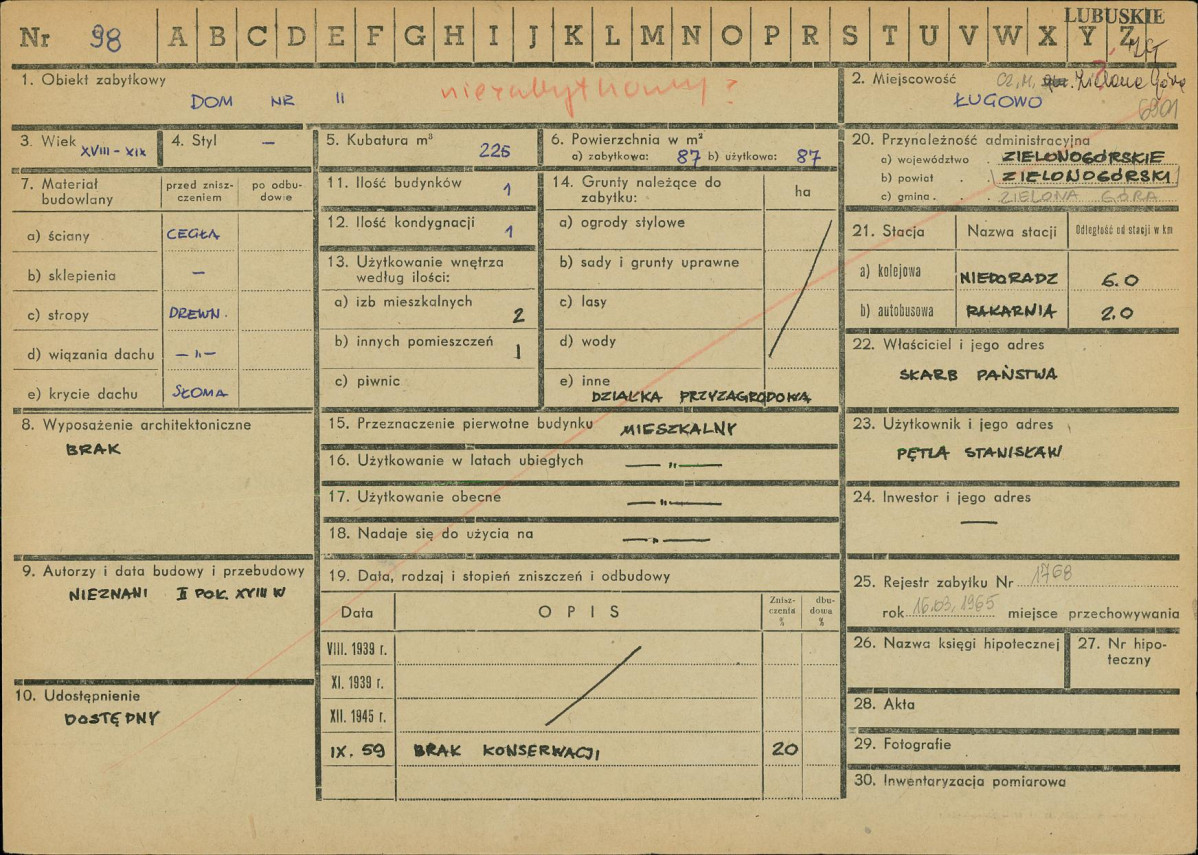 LUBUSKIE
Nr 98 A B C D E F G H I J K L M N O P R S T U V W X Y Z
1. Obiekt zabytkowy
DOM NR 11
niezabytkowy?
2. Miejscowość
Zielona Góra
ŁUGOWO
3. Wiek XVIII - XIX
4. Styl —
5. Kubatura m³ 225
6. Powierzchnia w m²
a) zabytkowa: 87 b) użytkowa: 87
7. Materiał budowlany
przed znisz-
czeniem
po odbu-
dowie
a) ściany CEGŁA
b) sklepienia —
c) stropy DREWN.
d) wiązania dachu —„—
e) krycie dachu SŁOMA
8. Wyposażenie architektoniczne
BRAK
9. Autorzy i data budowy i przebudowy
NIEZNANI II POŁ. XVIII W
10. Udostępnienie
DOSTĘPNY
11. Ilość budynków 1
12. Ilość kondygnacji 1
13. Użytkowanie wnętrza
według ilości:
a) izb mieszkalnych 2
b) innych pomieszczeń 1
c) piwnic
14. Grunty należące do
zabytku:
ha
a) ogrody stylowe
b) sady i grunty uprawne
c) lasy
d) wody
e) inne
DZIAŁKA PRZYZAGRODOWA
15. Przeznaczenie pierwotne budynku MIESZKALNY
16. Użytkowanie w latach ubiegłych —„—
17. Użytkowanie obecne —„—
18. Nadaje się do użycia na —„—
19. Data, rodzaj i stopień zniszczeń i odbudowy
Data OPIS
Znisz-
czenia
%
dbu-
dowa
%
VIII. 1939 r.
XI. 1939 r.
XII. 1945 r.
IX. 59 BRAK KONSERWACJI 20
20. Przynależność administracyjna
a) województwo . ZIELONOGÓRSKIE
b) powiat . ZIELONOGÓRSKI
c) gmina . . ZIELONA GÓRA
21. Stacja Nazwa stacji Odległość od stacji w km
a) kolejowa NIEDORADZ 6.0
b) autobusowa RAKARNIA 2.0
22. Właściciel i jego adres
SKARB PAŃSTWA
23. Użytkownik i jego adres
PĘTLA STANISŁAW
24. Inwestor i jego adres
—
25. Rejestr zabytku Nr 1768
rok 16.03.1965 miejsce przechowywania
26. Nazwa księgi hipotecznej
27. Nr hipo-
teczny
28. Akta
29. Fotografie
30. Inwentaryzacja pomiarowa